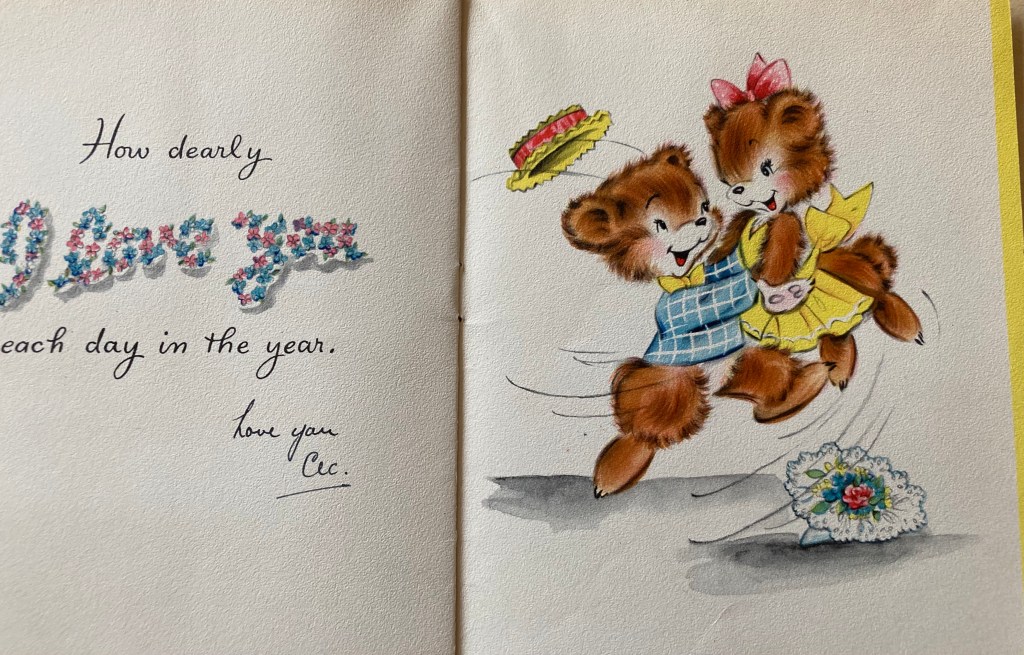 How dearly
I love you
each day in the year.
Love you
Cec.